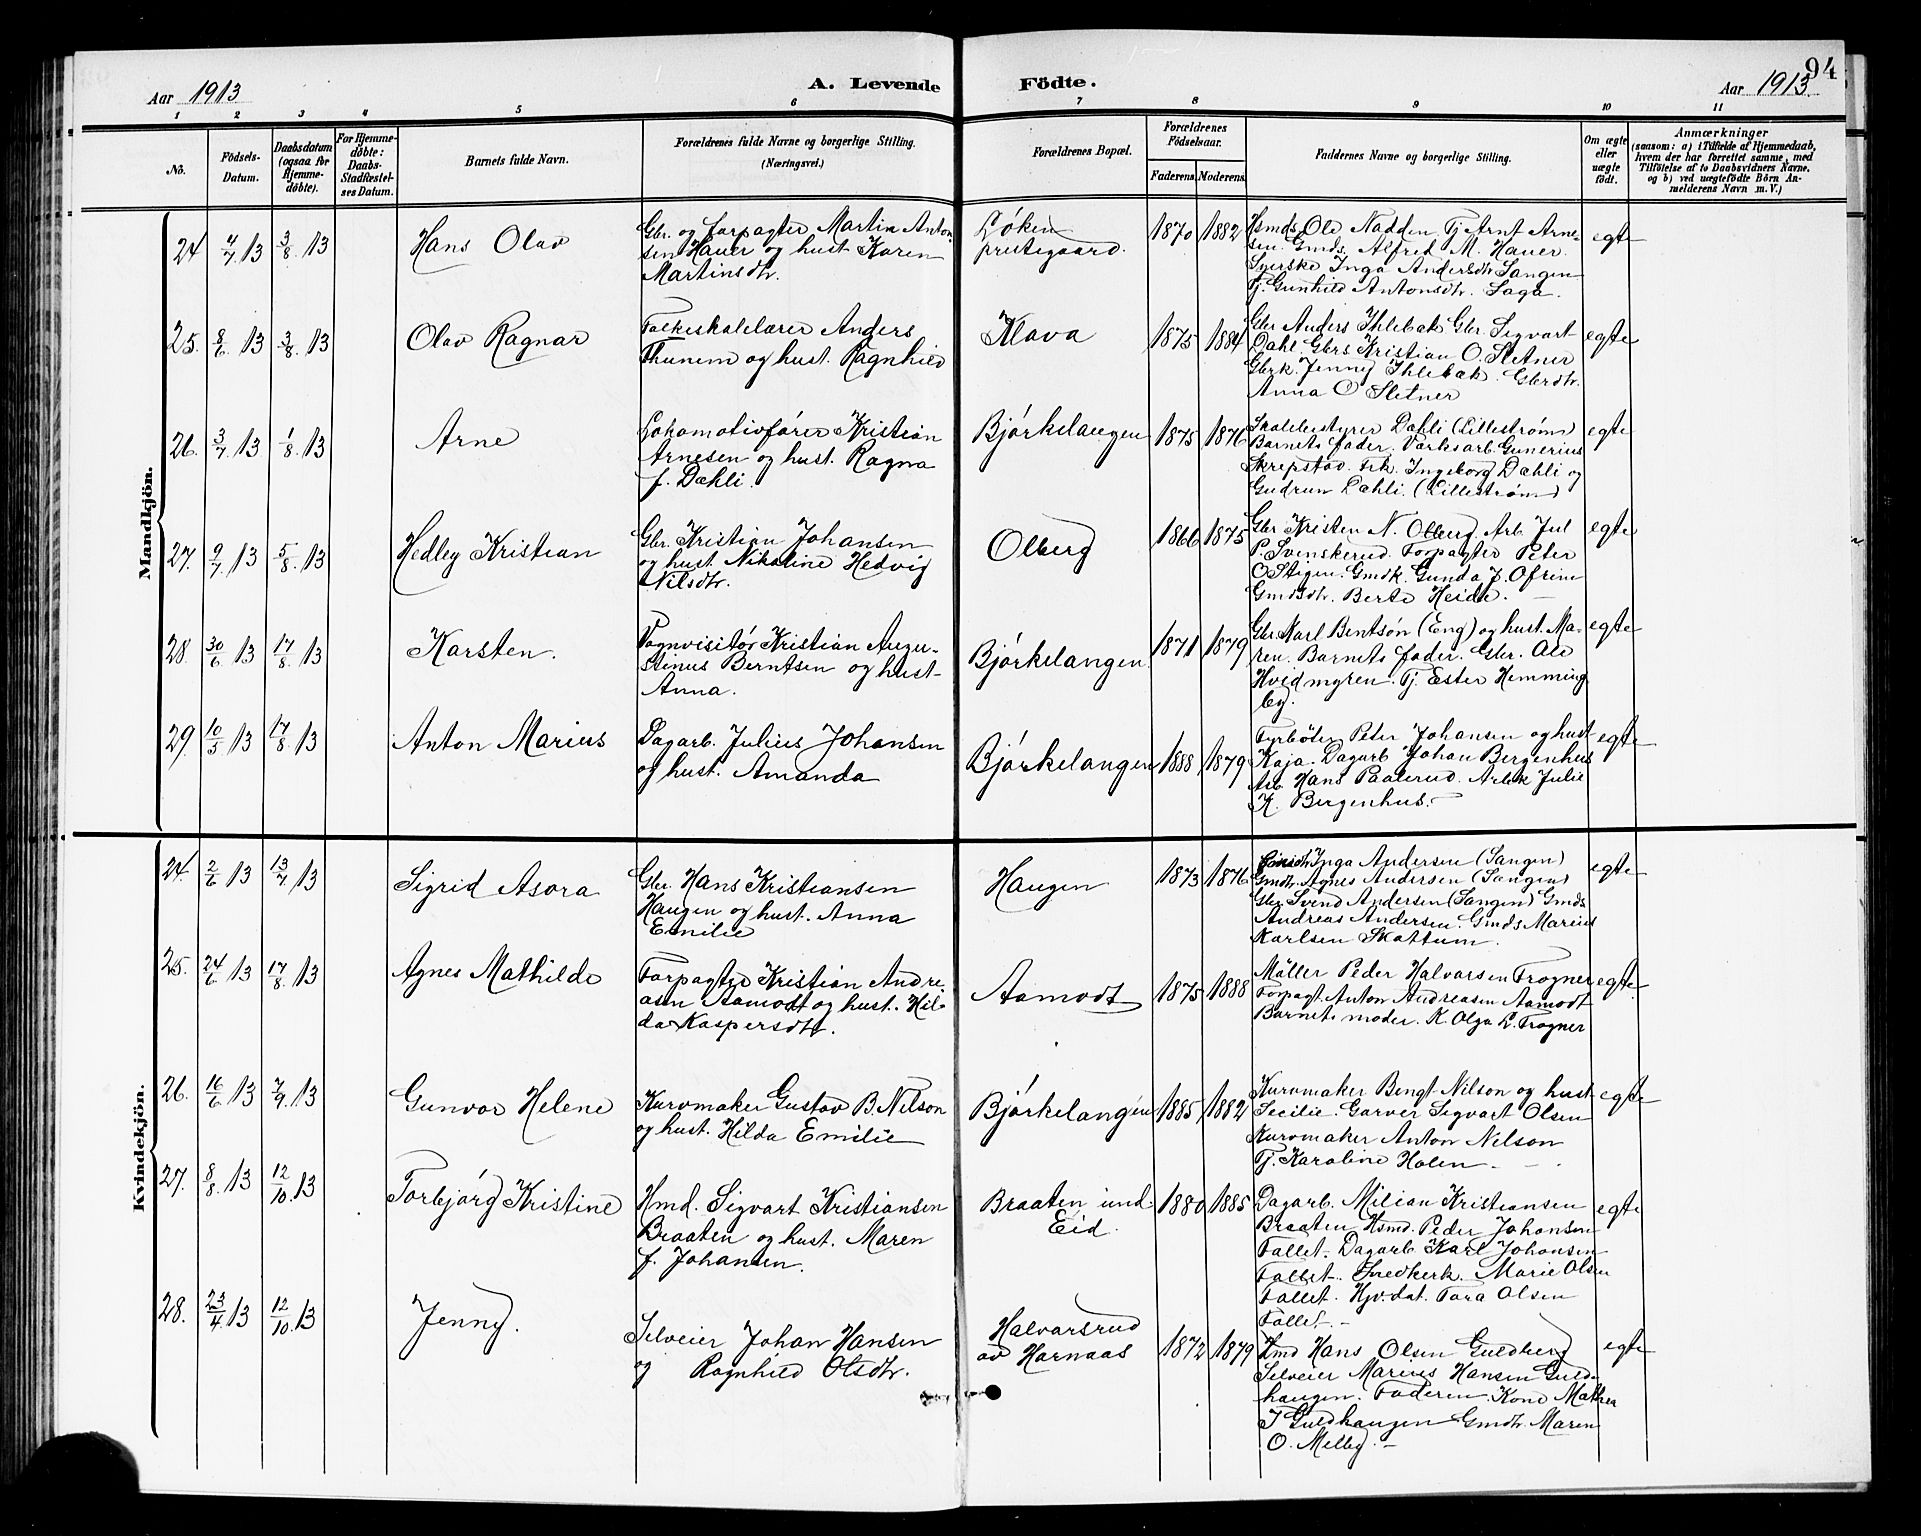 94
Aar 1913
A. Levende
Födte.
Aar 1913.
1 2 3 4 5 6 7 8 9 10 11
No.
Födsels-
Datum.
Daabsdatum
(ogsaa for
Hjemme-
döbte).
For Hjemme-
döbte:
Daabs-
Stadfæstel-
ses Datum.
Barnets fulde Navn.
Forældrenes fulde Navne og borgerlige Stilling.
(Næringsvei.)
Forældrenes Bopæl.
Forældrenes
Födselsaar.
Faderens. Moderens.
Faddernes Navne og borgerlige Stilling.
Om ægte
eller
uægte
födt.
Anmærkninger
(saasom: a) i Tilfælde af Hjemmedaab,
hvem der har forrettet samme, med
Tilföielse af to Daabsvidners Navne,
og b) ved uægtefödte Börn An-
melderens Navn m. V.)
Mandkjön.
24 4/7 13 3/8 13
Hans Olav
Gbr. og forpagter Martin Anton-
sen Hauer og hust Karen
Martinsdtr.
Løken
prestegaard.
1870 1882
Hsmds Ole Nadden Tj Arnt Arne-
sen. Gmds. Alfred M. Hauer.
Syerske Inga Andersdtr Sangen
Tj. Gunhild Antonsdtr. Saga.
egte
25. 8/6 13 3/8 13
Olav Ragnar
Folkeskolelærer Anders
Thunem og hust. Ragnhild
Klava
1875 1884
Gbr Anders Ihlebæk Gbr. Sigvart
Dahl. Gbrs Kristian O. Sletner
Gbrk. Jenny Ihlebæk. Gbrdtr.
Anna O Sletner
egte
26. 3/7 13 1/8 13
Arne
Lokomotivfører Kristian
Arnesen og hust. Ragna
f. Dæhli.
Bjørkelangen
1875 1876
Skolebestyrer Dæhli (Lillestrøm)
Barnets fader. Verksarb. Gunerius
Skrepstad. Frk. Ingeborg Dæhli og
Gudrun Dæhli. (Lillestrøm)
egte
27. 9/7 13 5/8 13
Hedley Kristian
Gbr. Kristian Johansen
og hust. Nikoline Hedvig
Nilsdtr.
Olberg
1866 1875
Gbr Kristen N. Olberg. Arb. Jul
P. Svenskerud. Forpagter Peter
O Stigen. Gmdk. Gunda J. Ofrim
Gmdsdtr. Berte Heide.
egte
28. 30/6 13 17/8 13
Karsten.
Vognvisitør Kristian Augu-
stinus Berntsen og hust
Anna.
Bjørkelangen.
1871 1879
Gbr. Karl Bentsøn (Eng) og hust. Ma-
ren. Barnets fader. Gbr. Ole
Hvidmyren. Tj. Ester Hemming
by.
egte
29. 10/5 13 17/8 13
Anton Marius
Dagarb. Julius Johansen
og hust. Amanda
Bjørkelangen
1888 1879
Fyrbøter Peter Johansen og hust
Kaja. Dagarb Johan Bergenhus
Arb. Hans Paalerud. Arbk Julie
K. Bergenhus.
egte
Kvindekjön.
24. 2/6 13 13/7 13
Sigrid Asora
Gbr. Hans Kristiansen
Haugen og hust. Anna
Emilie
Haugen
1873 1876
Inga Andersen (Sangen)
Gmdtr. Agnes Andersen (Sangen)
Gbr. Svend Andersen (Sangen) Gmds
Andreas Andersen. Gmds Marius
Karlsen Skattum.
egte
25. 24/6 13 17/8 13
Agnes Mathilde
Forpagter Kristian Andre-
asen Aamodt og hust. Hil-
da Kaspersdtr.
Aamodt
1875 1888
Møller Peder Halvorsen Frogner
Forpagt. Anton Andreasen Aamodt
Barnets moder. K. Olga L. Frogner
egte.
26. 16/6 13 7/9 13
Gunvor Helene
Kurvmaker Gustav B. Nilson
og hust. Hilda Emilie
Bjørkelangen
1885 1882
Kurvmaker Bengt Nilson og hust
Cecilie. Garver Sigvart Olsen
Kurvmaker Anton Nilson
Tj. Karoline Holen.
egte
27. 8/8 13 12/10 13
Torbjørg Kristine
Hmd. Sigvart Kristiansen
Braaten og hust. Maren
f. Johansen.
Braaten und.
Eid.
1880 1885
Dagarb. Milian Kristiansen
Braaten Hsmd. Peder Johansen
Fallet. Dagarb Karl Johansen
Fallet. Snedkerk. Marie Olsen
Fallet. Hjv.dat. Tora Olsen
Fallet.
egte
28. 23/4 13 12/10 13
Jenny.
Selveier Johan Hansen
og Ragnhild Olsdtr.
Halvarsrud
av Harnaas
1872 1879
Hmd Hans Olsen Guldberg
Selveier Marius Hansen Guld-
haugen. Faderen. Kone Mathea
J Guldhaugen Gmdtr. Maren
O. Melby.
egte